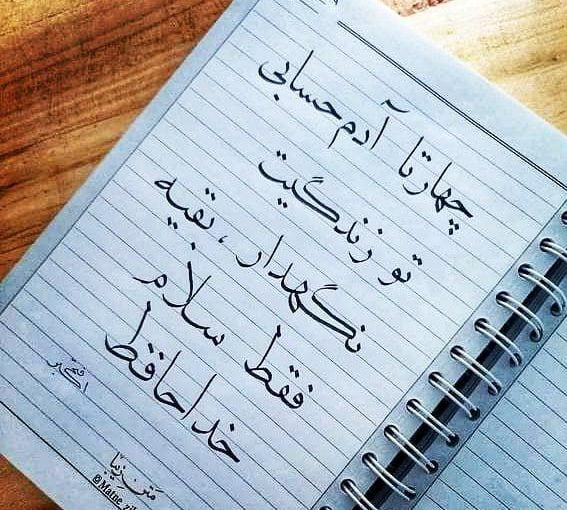 چهارتا آدم حسابی
تو زندگیت
نگهدار، بقیه
فقط سلام
خداحافظ
اکبر
متن زیبا